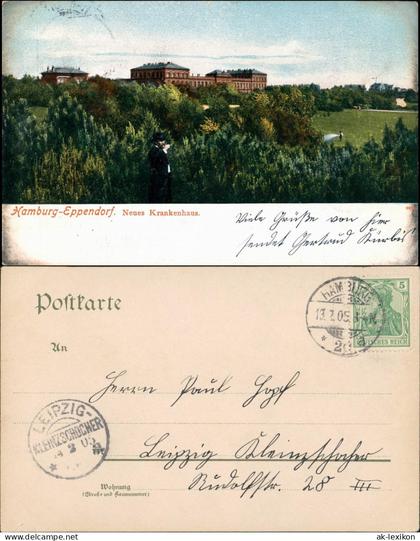 Hamburg-Eppendorf. Neues Krankenhaus.
Viele Grüße von hier
sendet Gertrud Kürbis
Postkarte
An
HAMBURG
13.2.05.
* 20
5
DEUTSCHES REICH
Herrn Paul Hopf
LEIPZIG-
KLEINZSCHOCHER
2 05
Leipzig Kleinzschocher
Wohnung
(Straße und Hausnummer)
Rudolfstr. 28 III
www.ak-lexikon.de
ak-lexikon